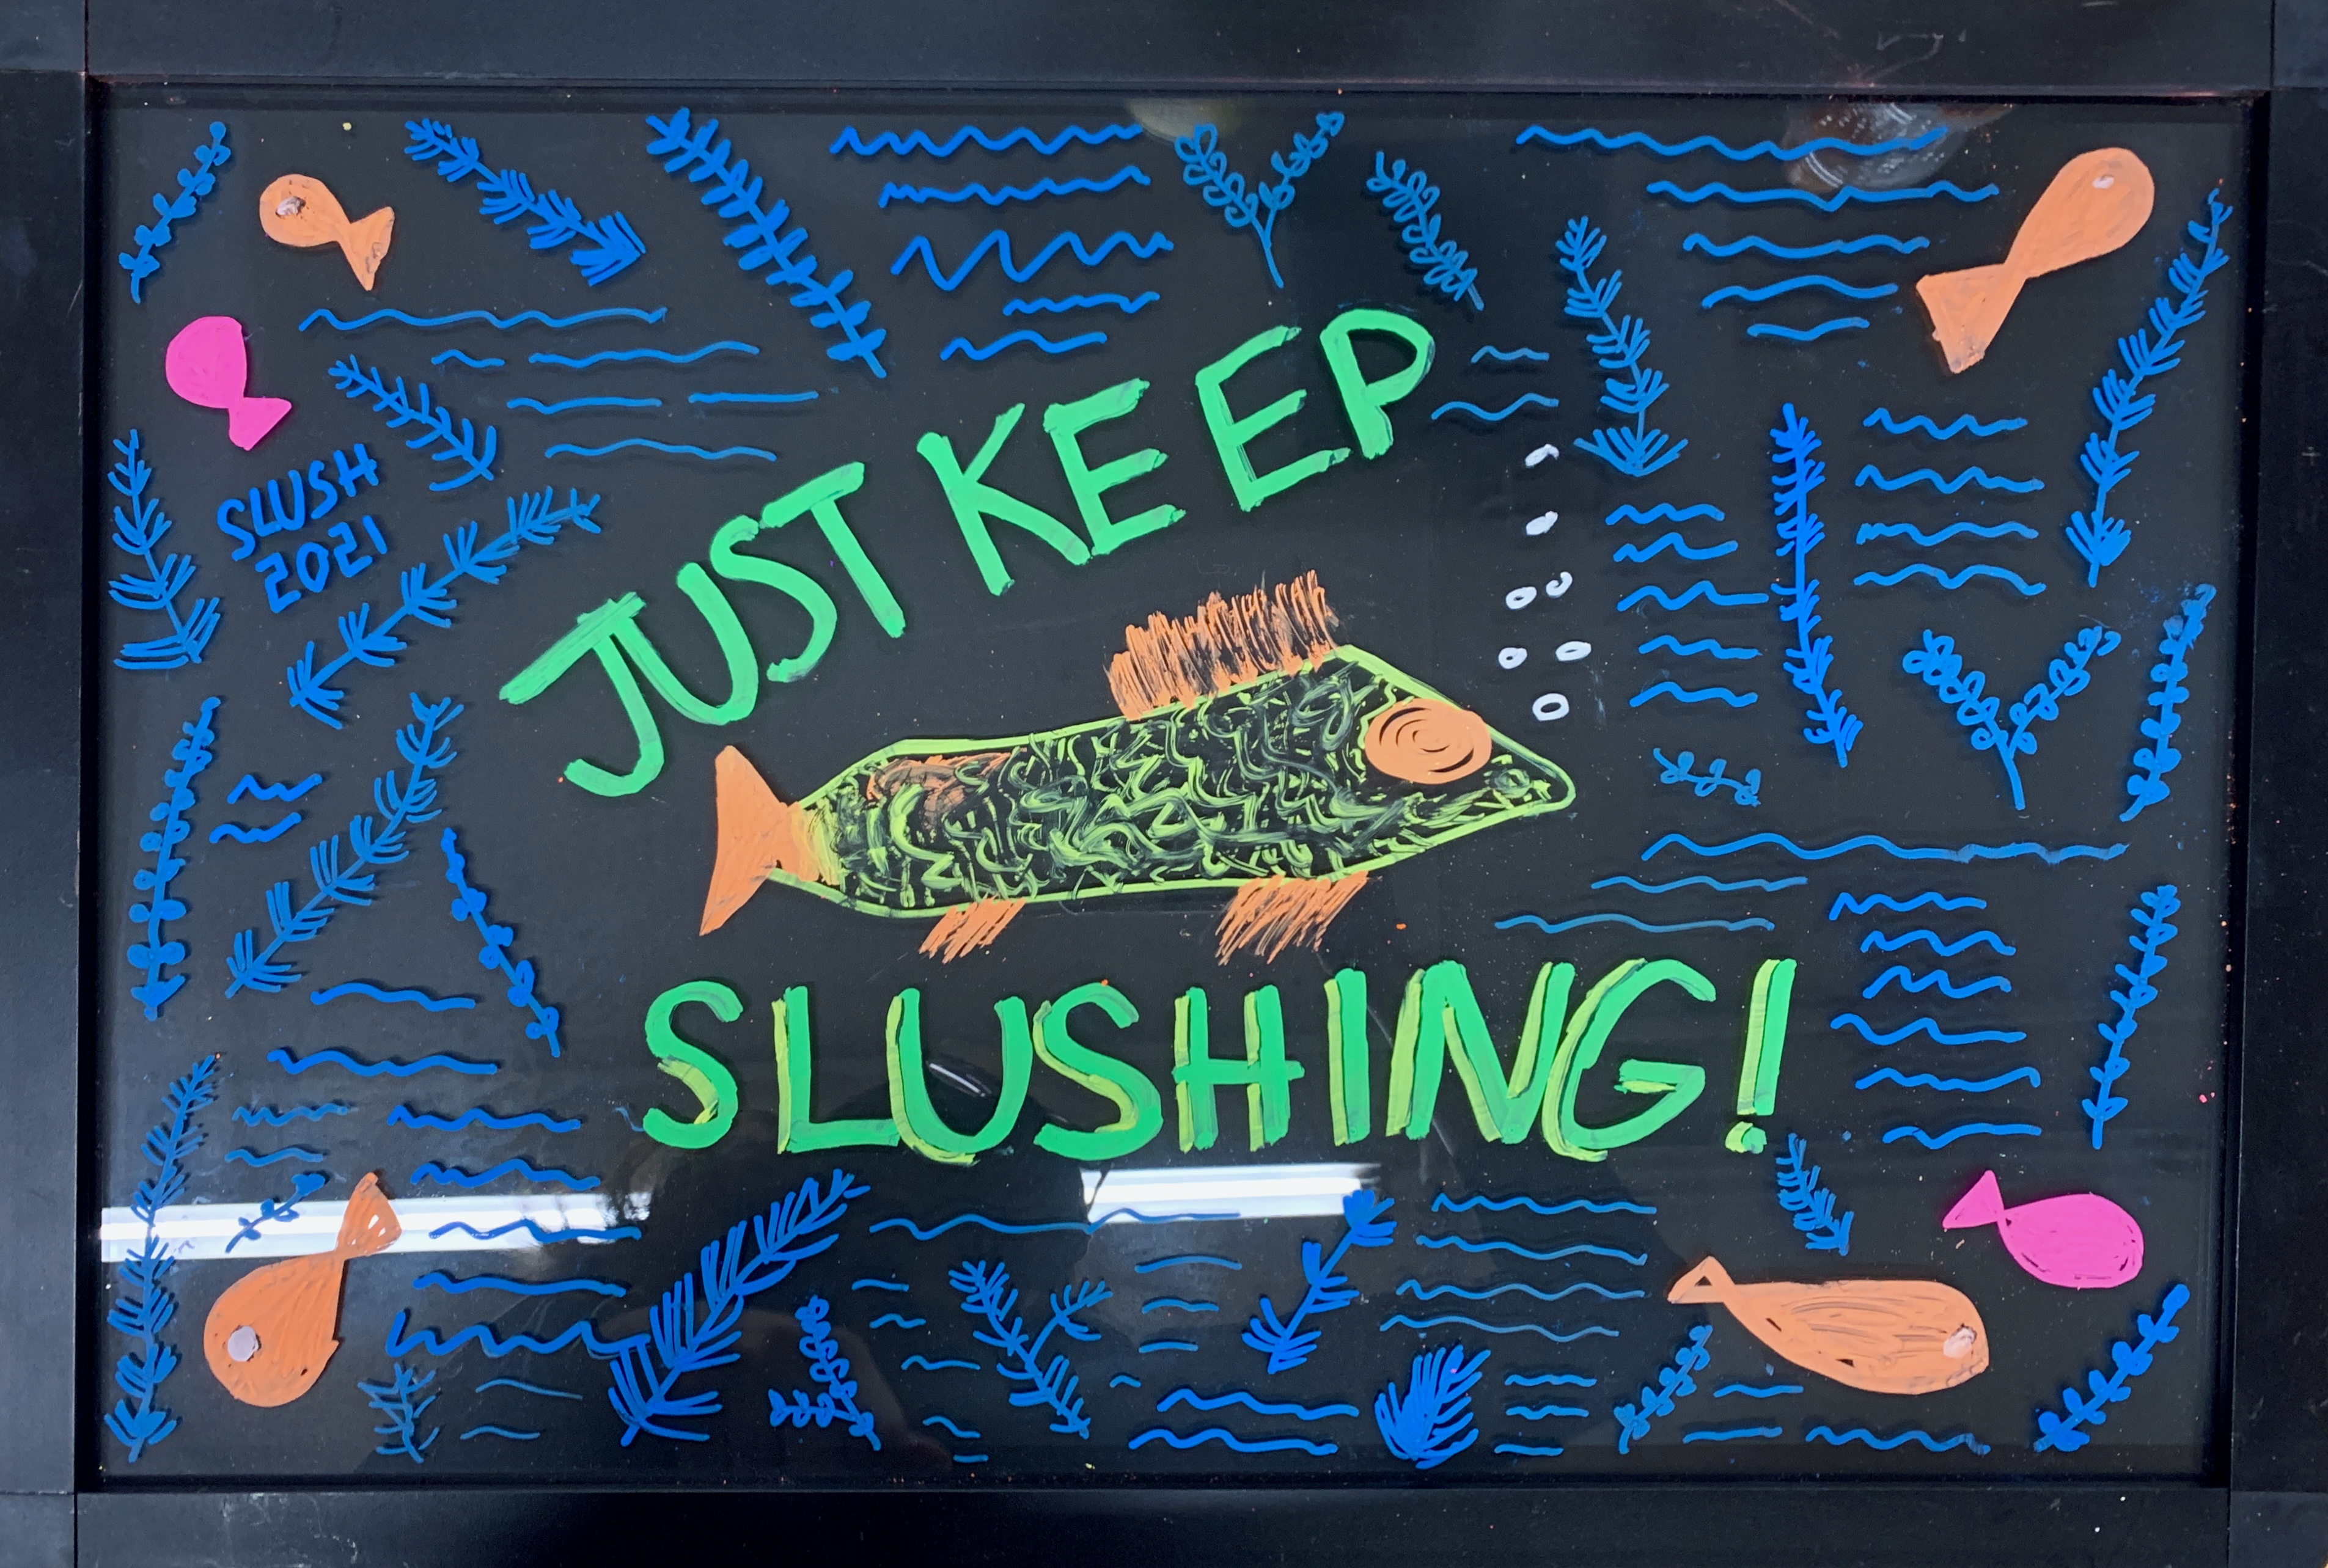 SLUSH
2021
JUST KEEP
SLUSHING!